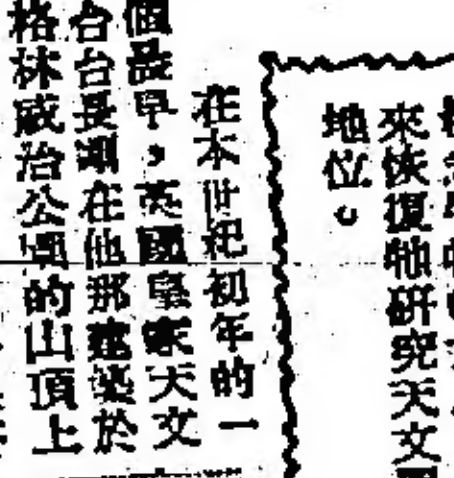 來恢復牠研究天文
地位。
在本世紀初年的一
個最早，英國皇家天文
台台長測在他那建築於
格林威治公園的山頂上